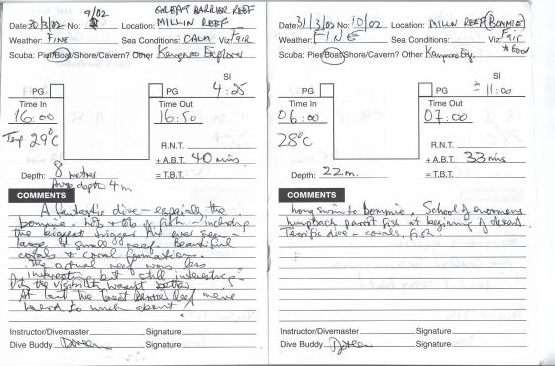 9/02 GREAT BARRIER REEF
Date: 30/3/02 No: Location: MILLIN REEF
Weather: FINE Sea Conditions: CALM Viz: FAIR
Scuba: Pier/Boat/Shore/Cavern? Other Kangaroo Explorer
SI
PG PG 4:25
Time In Time Out
16:00 16:50
Temp 29°C
R.N.T.
+A.B.T. 40 mins
Depth: 8 metres =T.B.T.
Average depth 4m
COMMENTS
A fantastic dive - especially the
bommie. Lots & lots of fish - including
the biggest I've ever seen
large & small reef. Beautiful
corals & coral formations.
The actual reef was less
interesting but still interesting
the visibility wasn't better.
At last the Great Barrier Reef we've
heard so much about!
Instructor/Divemaster Signature
Dive Buddy Doreen Signature
Date: 31/3/02 No: 10/02 Location: MILLN REEF (BOMMIE)
Weather: FINE Sea Conditions: Viz: Fair
to Good
Scuba: Pier/Boat/Shore/Cavern? Other Kangaroo Exp.
SI
PG PG 11:00
Time In Time Out
06:00 07:00
28°C
R.N.T.
+A.B.T. 33 mins
Depth: 22m. =T.B.T.
COMMENTS
Long swim to bommie. School of enormous
humpback parrot fish at beginning of descent.
Terrific dive - corals, fish
Instructor/Divemaster Signature
Dive Buddy Doreen Signature